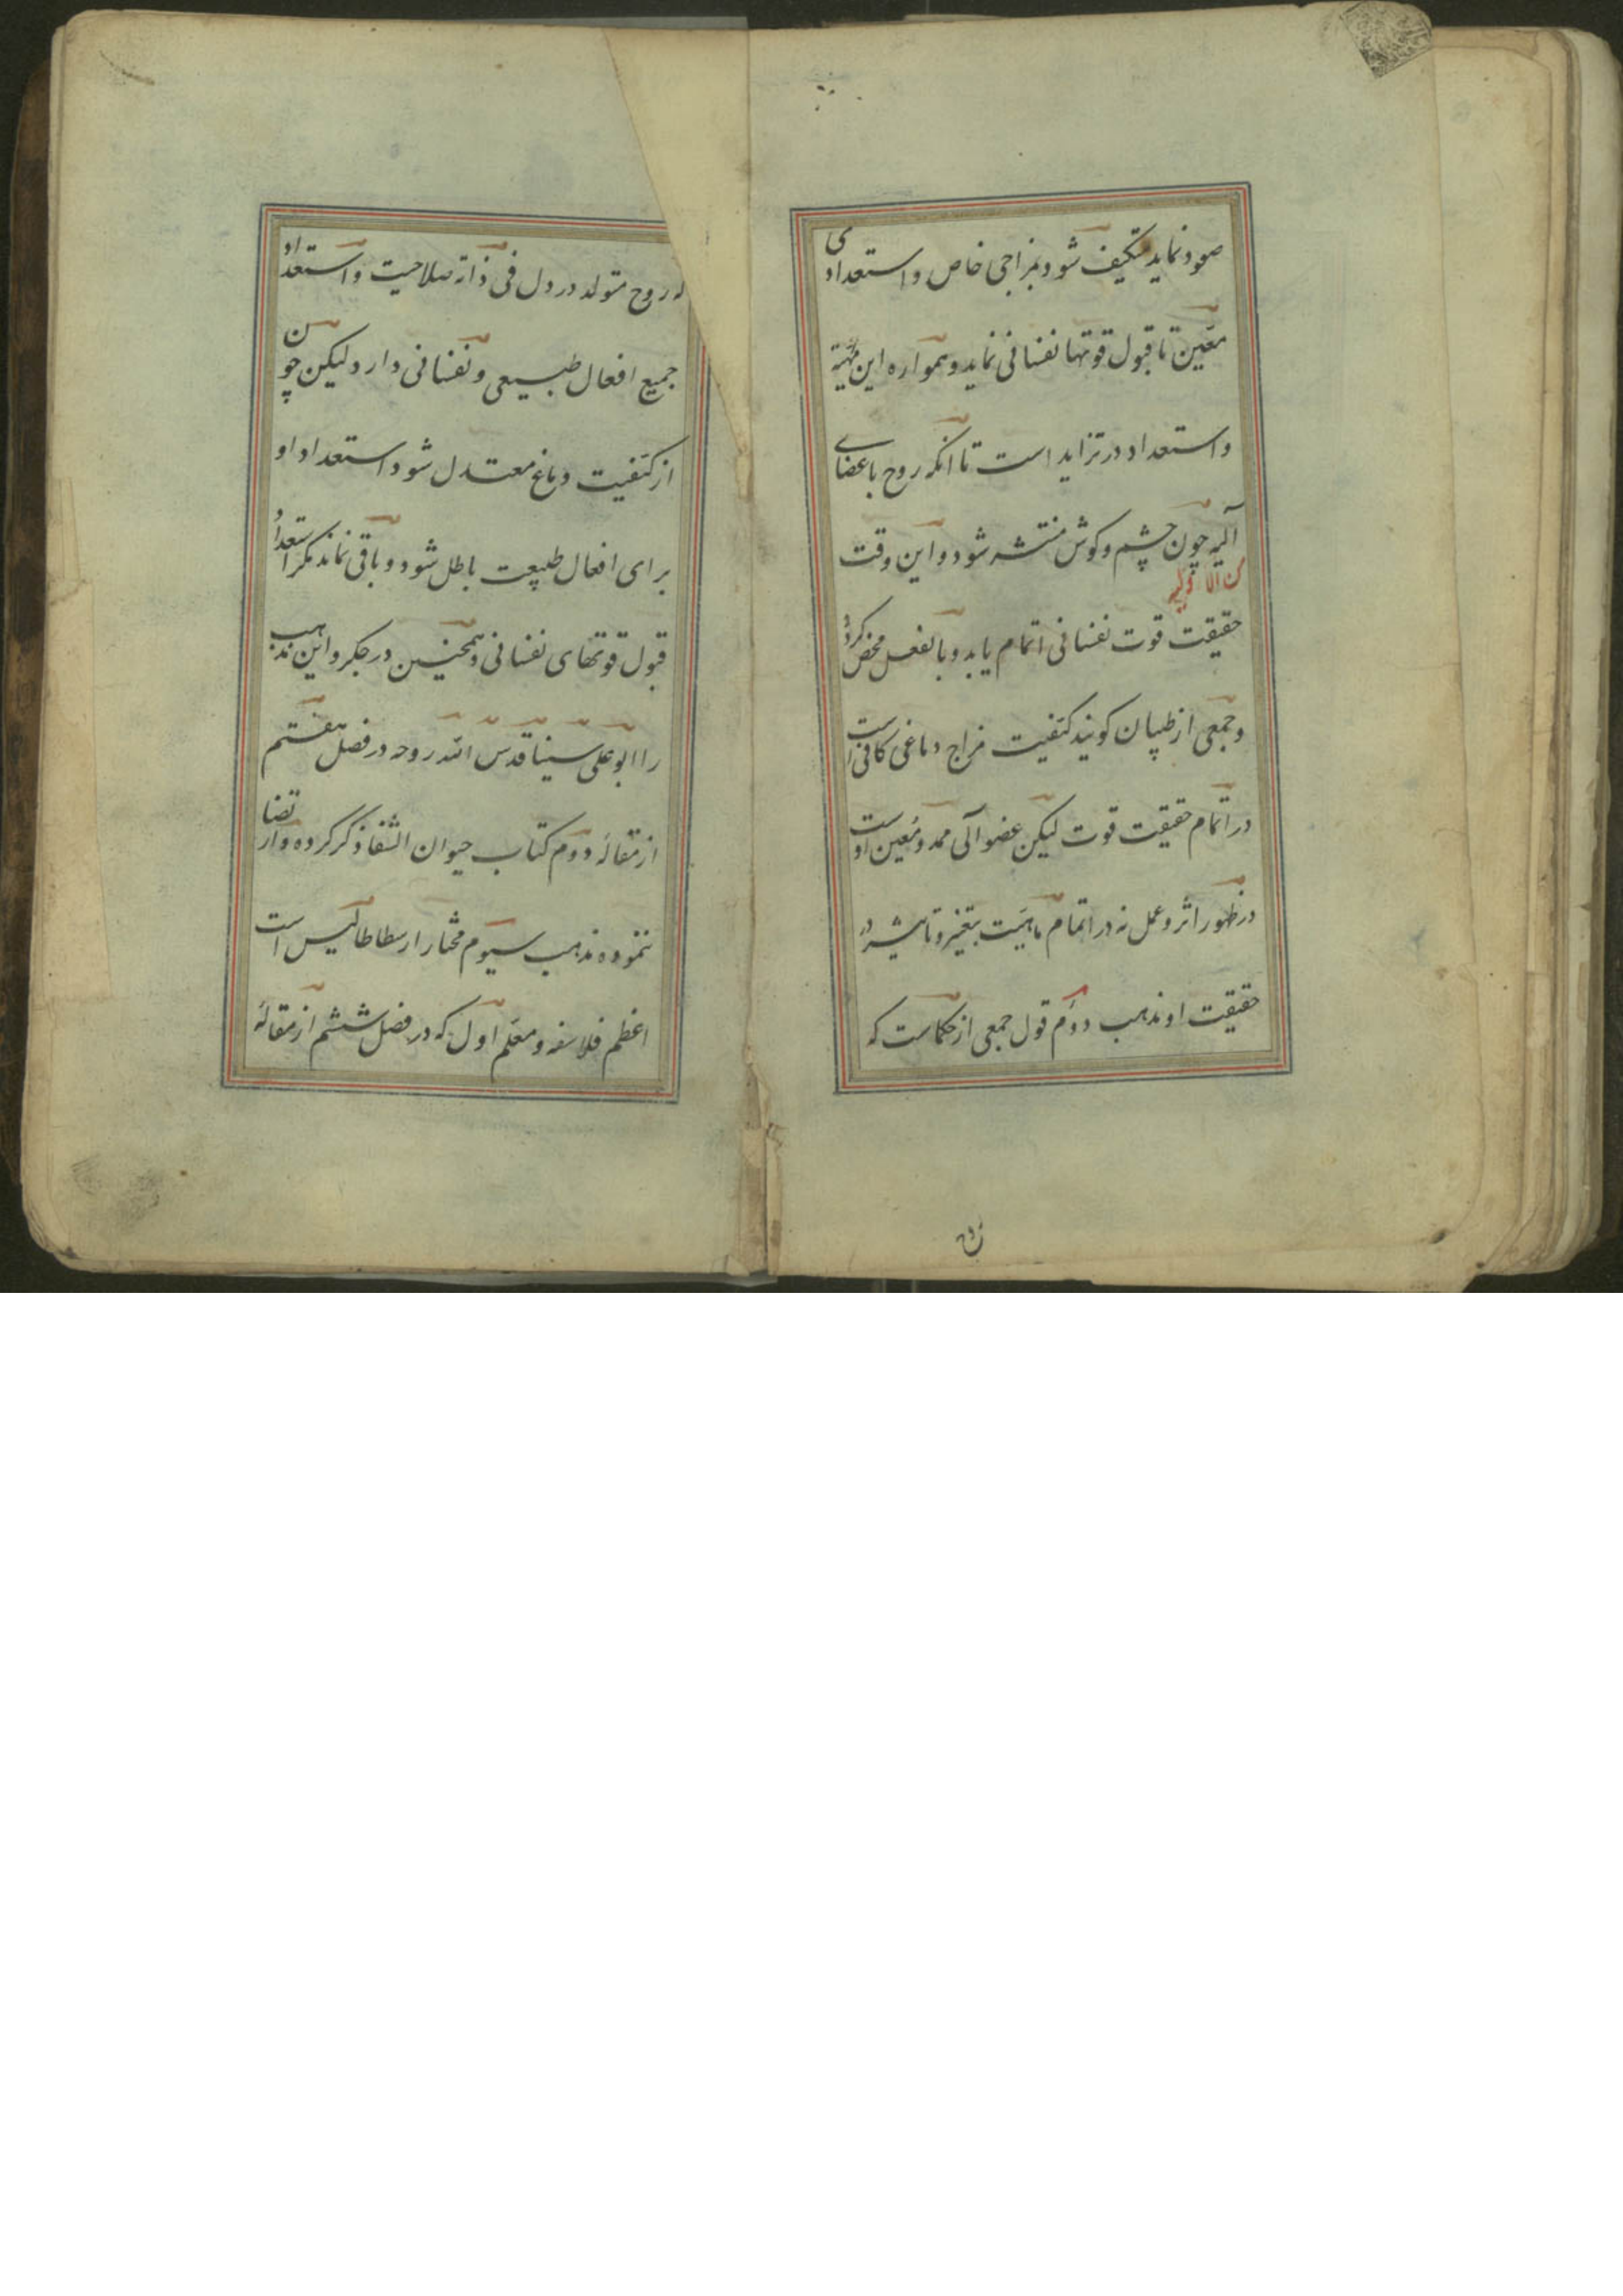 صعود نماید متکیف شود بمزاجی خاص و استعدادی
معین تا قبول قوتها نفسانی نماید و همواره این تهیئه
و استعداد در تزاید است تا آنکه روح باعضای
آلیه چون چشم و کوش منتشر شود و این وقت
حقیقت قوت نفسانی اتمام یابد و بالفعل محض کردد
و جمعی از طبیبان کویند کیفیت مزاج دماغی کافی است
در اتمام حقیقت قوت لیکن عضو آلی ممد و معین اوست
در ظهور اثر و عمل نه در اتمام ماهیت بتغیر و تاثیر در
حقیقت او مذهب دوم قول جمعی از حکماست که
روح متولد در دل فی ذاته صلاحیت و استعداد
جمیع افعال طبیعی و نفسانی دارد ولیکن چون
از کیفیت دماغ معتدل شود استعداد او
برای افعال طبیعت باطل شود و باقی نماند مکر استعداد
قبول قوتهای نفسانی و همچنین در جکر و این مذهب
را ابو علی سینا قدس الله روحه در فصل هفتم
از مقاله دوم کتاب حیوان الشفا ذکر کرده و ارتضا
ننموده مذهب سیوم مختار ارسطاطالیس است
اعظم فلاسفه و معلم اول که در فصل ششم از مقاله